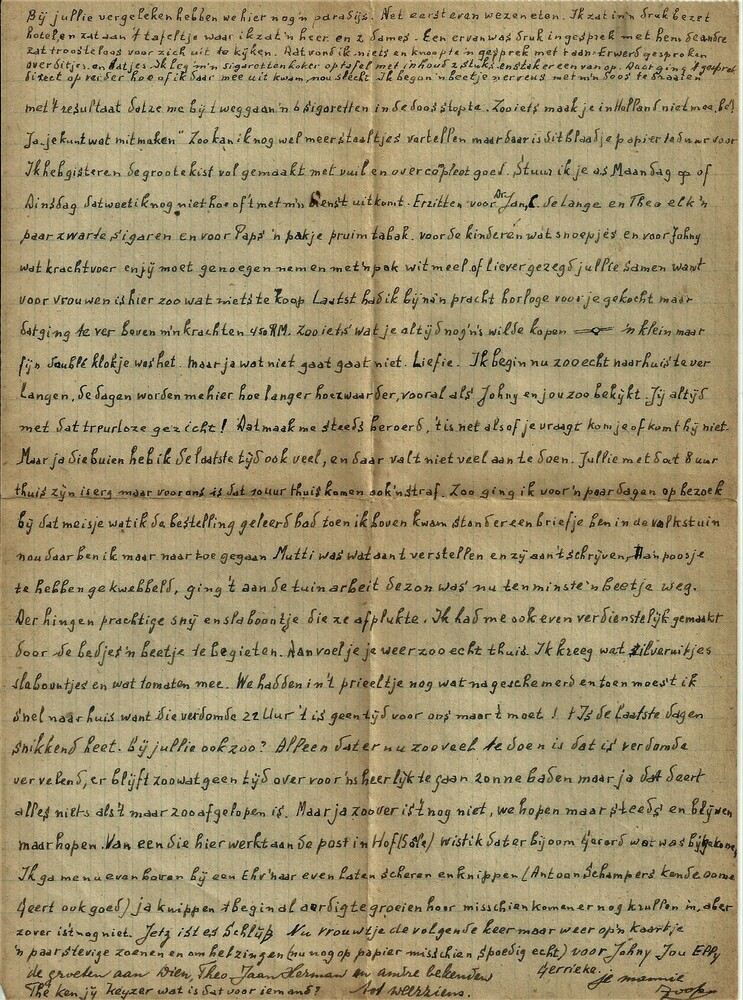 Bij jullie vergeleken hebben we hier nog 'n paradijs. Net eerst even wezen eten. Ik zat in 'n druk bezet
hotel en zat aan 't tafeltje waar ik zat 'n heer en 2 dames. Een ervan was druk in gesprek met hem de andre
zat troosteloos voor zich uit te kijken. Dat vond ik niets en knoopte 'n gesprek met haar. Er werd gesproken
over ditjes en datjes. Ik leg m'n sigarettenkoker op tafel met inhoud 2 stuks en staker een van op. Daar ging 't gesprek
direct op reider hoe of ik daar mee uit kwam, nou slecht. Ik begon 'n beetje nerveus met m'n doos te draaien
met 't resultaat dat ze me bij 't weggaan 'n 6 sigaretten in de doos stopte. Zoo iets maak je in Holland niet mee hè!
Ja "je kunt wat mitmaken" Zoo kan ik nog wel meer staaltjes vertellen maar daar is dit blaadje papier te duur voor
Ik heb gisteren de groote kist vol gemaakt met vuil en overcompleet goed. Stuur ik je as Maandag op of
Dinsdag dat weet ik nog niet hoe of 't met m'n dienst uitkomt. Er zitten voor Dr. Jan, C. de Lange en Theo elk 'n
paar zwarte sigaren en voor Paps 'n pakje pruimtabak. voor de kinderen wat snoepjes en voor Johny
wat krachtvoer en jij moet genoegen nemen met 'n pak wit meel of liever gezegd jullie samen want
voor vrouwen is hier zoo wat niets te koop Laatst had ik bijna 'n pracht horloge voor je gekocht maar
dat ging te ver boven m'n krachten 450 RM. Zoo iets wat je altijd nog 'ns wilde kopen 'n klein maar
fijn doublé klokje was het. Maar ja wat niet gaat gaat niet. Liefie. Ik begin nu zoo echt naar huis te ver
langen, de dagen worden me hier hoe langer hoe zwaarder, vooral als Johny en jou zoo bekijkt. Jij altijd
met dat treurloze gezicht! Dat maak me steeds beroerd, 't is net alsof je vraagt kom je of komt hij niet.
Maar ja die buien heb ik de laatste tijd ook veel, en daar valt niet veel aan te doen. Jullie met dat 8 uur
thuis zijn is erg maar voor ons is dat 10 uur thuis komen ook 'n straf. Zoo ging ik voor 'n paar dagen op bezoek
bij dat meisje wat ik de bestelling geleerd had toen ik boven kwam stond er een briefje ben in de volkstuin
nou daar ben ik maar naar toe gegaan Mutti was wat aan 't verstellen en zij aan 't schrijven, Na 'n poosje
te hebben gekwebbeld, ging 't aan de tuinarbeit de zon was nu tenminste 'n beetje weg.
Der hingen prachtige snij en slaboontje die ze afplukte. Ik had me ook even verdienstelijk gemaakt
door de bedjes 'n beetje te begieten. Dan voel je je weer zoo echt thuis. Ik kreeg wat zilveruitjes
slaboontjes en wat tomaten mee. We hadden in 't prieeltje nog wat nageschemerd en toen moest ik
snel naar huis want die verdomde 22 Uur 't is geen tijd voor ons maar 't moet! 't Is de laatste dagen
snikkend heet. Bij jullie ook zoo? Alleen dat er nu zoo veel te doen is dat is verdomde
vervelend, er blijft zoo wat geen tijd over voor 'ns heerlijk te gaan zonnebaden maar ja dat deert
alles niets als 't maar zoo afgelopen is. Maar ja zoo ver is 't nog niet, we hopen maar steeds en blijven
maar hopen. Van een die hier werkt aan de post in Hof (Sale) wist ik dat er bij oom Gerard wat was bijgekomen,
Ik ga me nu even boven bij een Ehr 'naar even laten scheren en knippen (Antoon Schampers kende oome
Geert ook goed) ja knippen 't begin al aardig te groeien hoor misschien komen er nog krullen in, aber
zover ist nog niet. Jetz ist es Schlusz Nu vrouwtje de volgende keer maar weer op 'n kaartje
'n paar stevige zoenen en omhelzingen (nu nog op papier misschien spoedig echt) voor Johny Jou Eppy
Gerrieke.
de groeten aan Dien, Theo, Jaan Herman en andre bekenden
je mannie
The ken jij Keyzer wat is dat voor iemand? Tot weerziens.
Joop